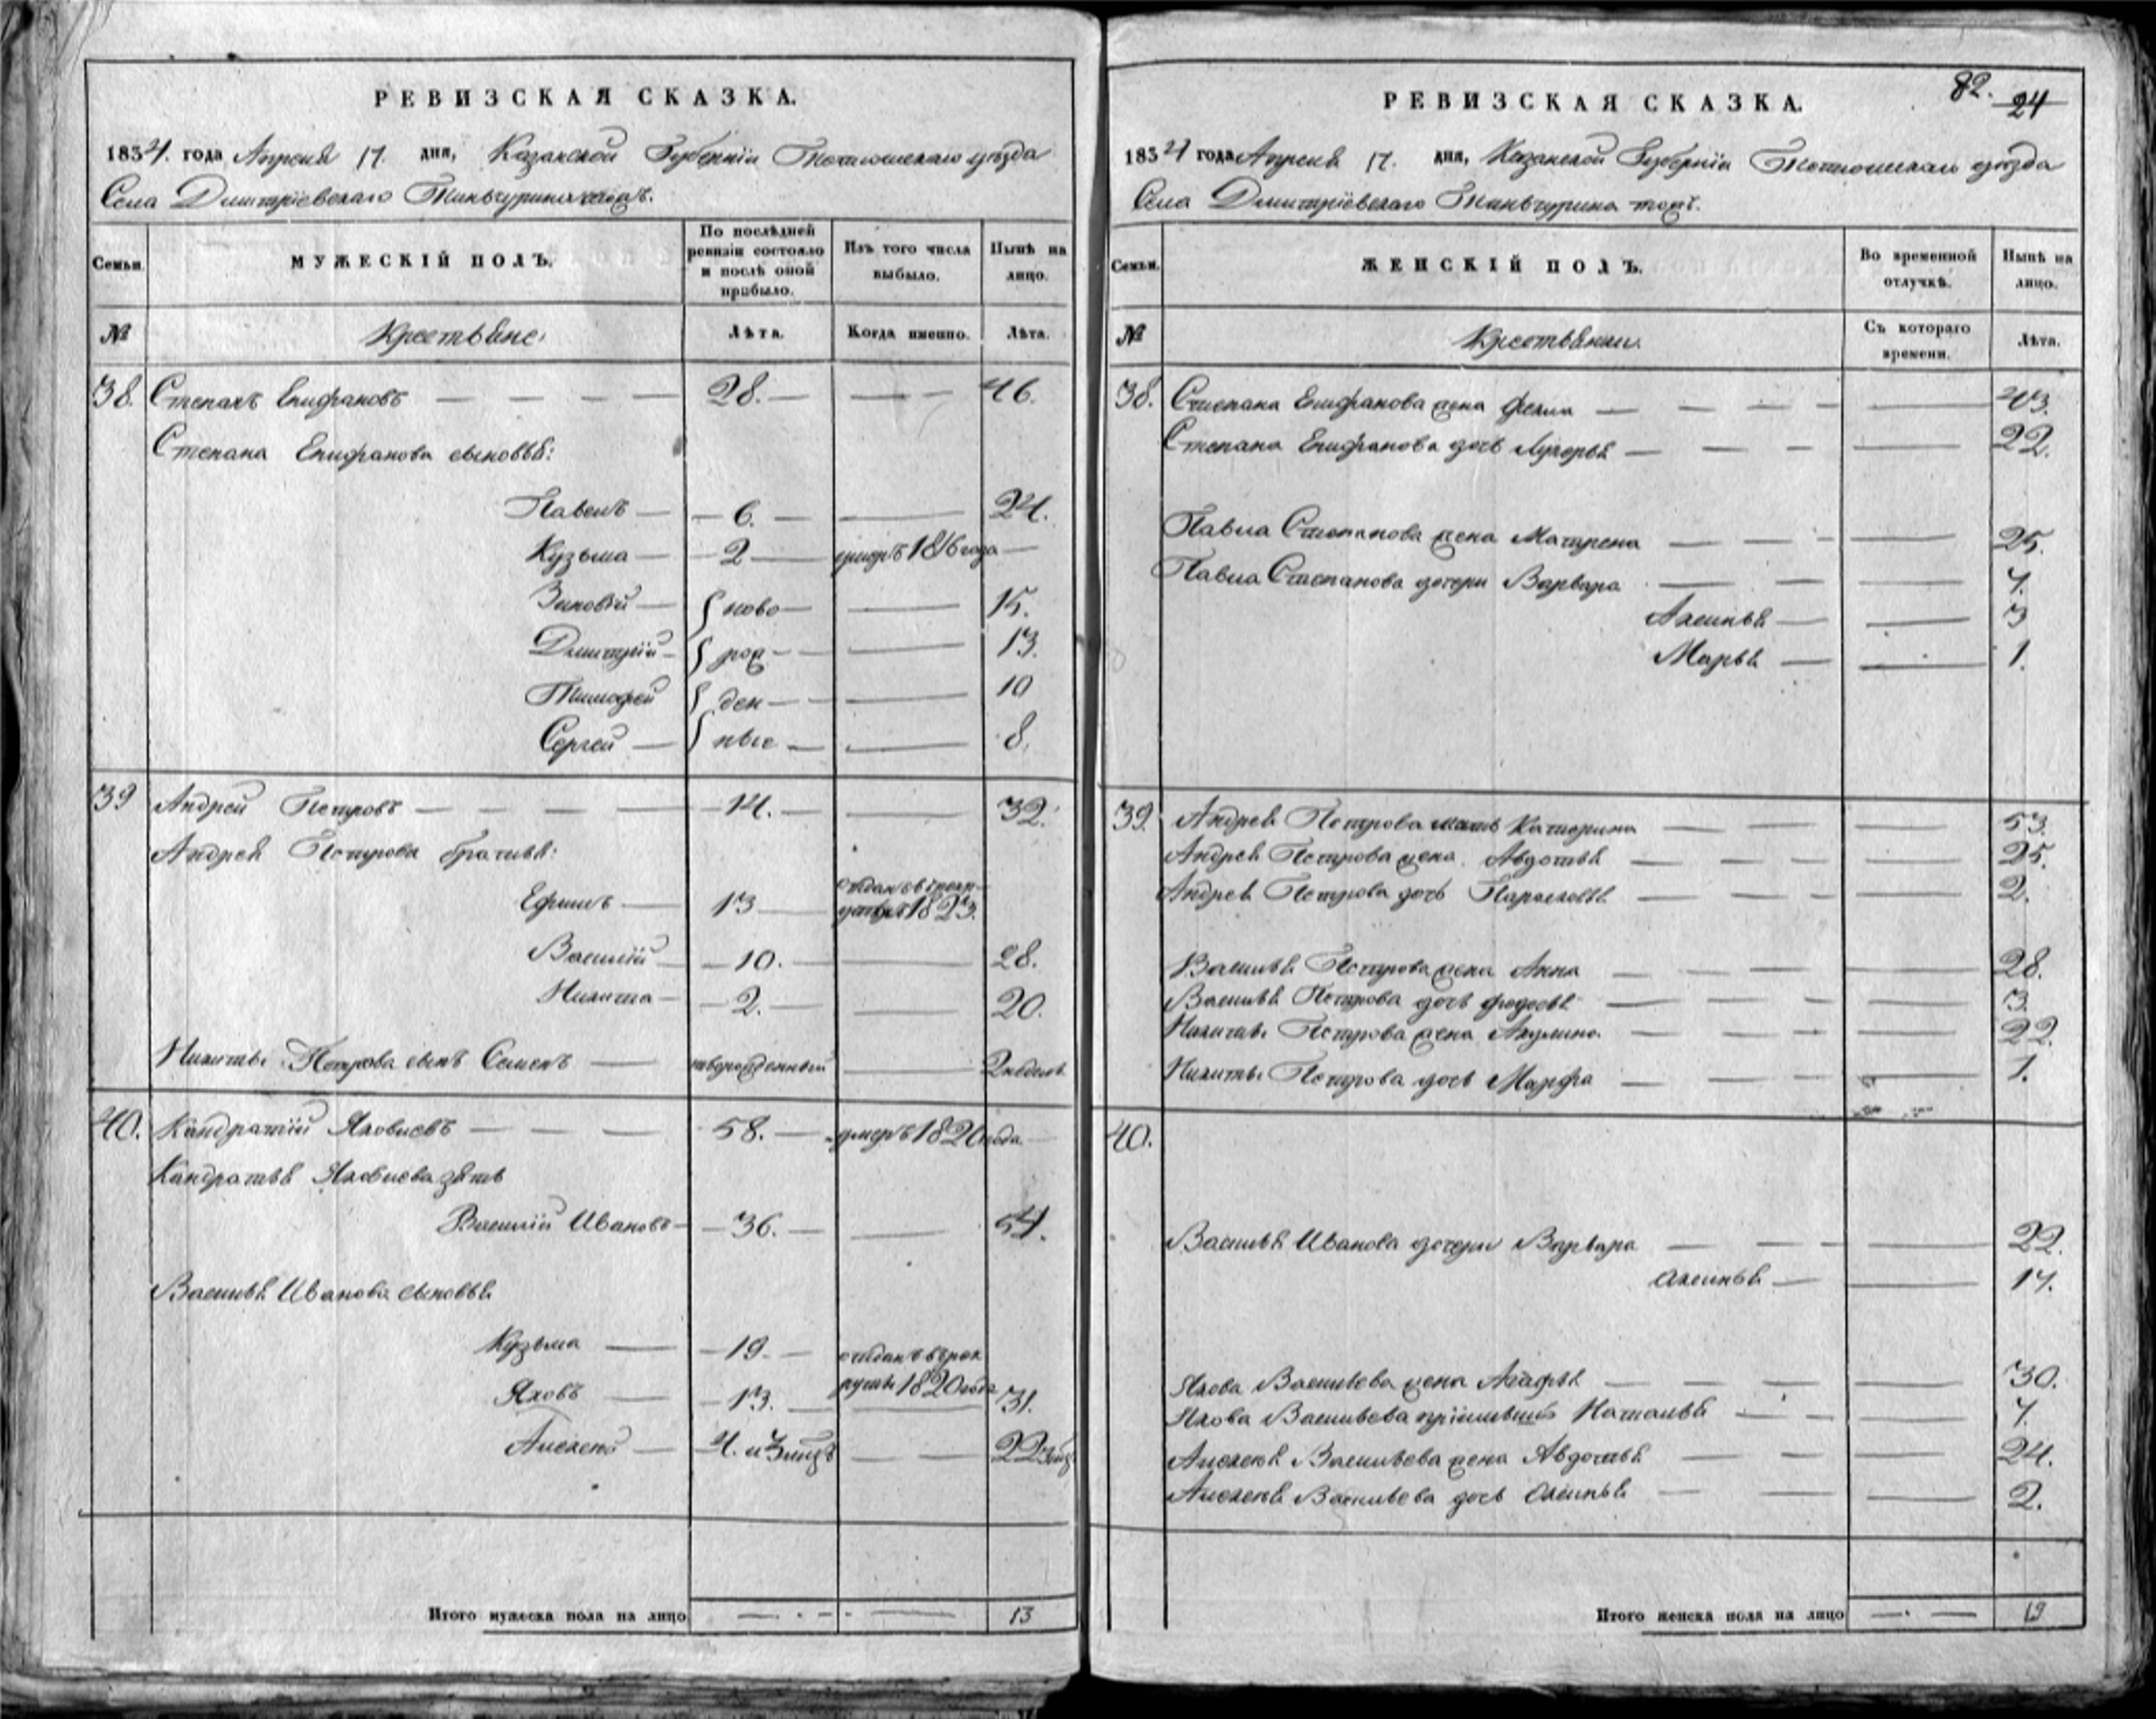 РЕВИЗСКАЯ СКАЗКА.
1834. года Апреля 17. дня, Казанской Губернiи Тетюшскаго уезда
Села Дмитрiевскаго Тиньчурина тожъ.
Семьи.
МУЖЕСКIЙ ПОЛЪ.
По послѣдней ревизiи состояло и послѣ оной прибыло.
Изъ того числа выбыло.
Нынѣ на лицо.
№
Крестьяне.
Лѣта.
Когда именно.
Лѣта.
38. Степанъ Епифановъ — 28. — 46.
Степана Епифанова сыновья:
Павелъ — 6. — 24.
Кузьма — 2 — умеръ 1816 года —
Зиновiй — ново — 15.
Дмитрiй — рож — 13.
Тимофей ден — 10
Сергей — ные — 8.
39 Андрей Петровъ — 14. — 32.
Андрея Петрова братья:
Ефимъ — 13 — отданъ в рекруты 1823.
Василiй — 10. — 28.
Никита — 2. — 20.
Никиты Петрова сынъ Семенъ — новорожденный — 2 недель
40. Кандратiй Яковлевъ — 58. — умеръ 1820 года —
Кандратья Яковлева зять
Василiй Ивановъ — 36. — 54.
Василья Иванова сыновья
Кузьма — 19. — отданъ в рекруты 1820 года
Яковъ — 13. — 31.
Алексей — 4. и 3 мцъ — 22 3 мц
Итого мужеска пола на лицо — 13
82. 24
РЕВИЗСКАЯ СКАЗКА.
1834 года Апреля 17. дня, Казанской Губернiи Тетюшскаго уезда
Села Дмитрiевскаго Тиньчурина тожъ.
Семьи.
ЖЕНСКIЙ ПОЛЪ.
Во временной отлучкѣ.
Нынѣ на лицо.
№
Крестьянки.
Съ котораго времени.
Лѣта.
38. Степана Епифанова жена Фекла — 43.
Степана Епифанова дочь Лукерья — 22.
Павла Степанова жена Матрена — 25.
Павла Степанова дочери Варвара — 4.
Аксинья — 3
Марья — 1.
39. Андрея Петрова мать Катерина — 53.
Андрея Петрова жена Авдотья — 25.
Андрея Петрова дочь Парасковья — 2.
Василья Петрова жена Анна — 28.
Василья Петрова дочь Федосья — 3.
Никиты Петрова жена Акулина — 22.
Никиты Петрова дочь Марфа — 1.
40.
Василья Иванова дочери Варвара — 22.
Аксинья — 17.
Якова Васильева жена Агафья — 30.
Якова Васильева Наталья — 7.
Алексея Васильева жена Авдотья — 24.
Алексея Васильева дочь Аксинья — 2.
Итого женска пола на лицо — 19